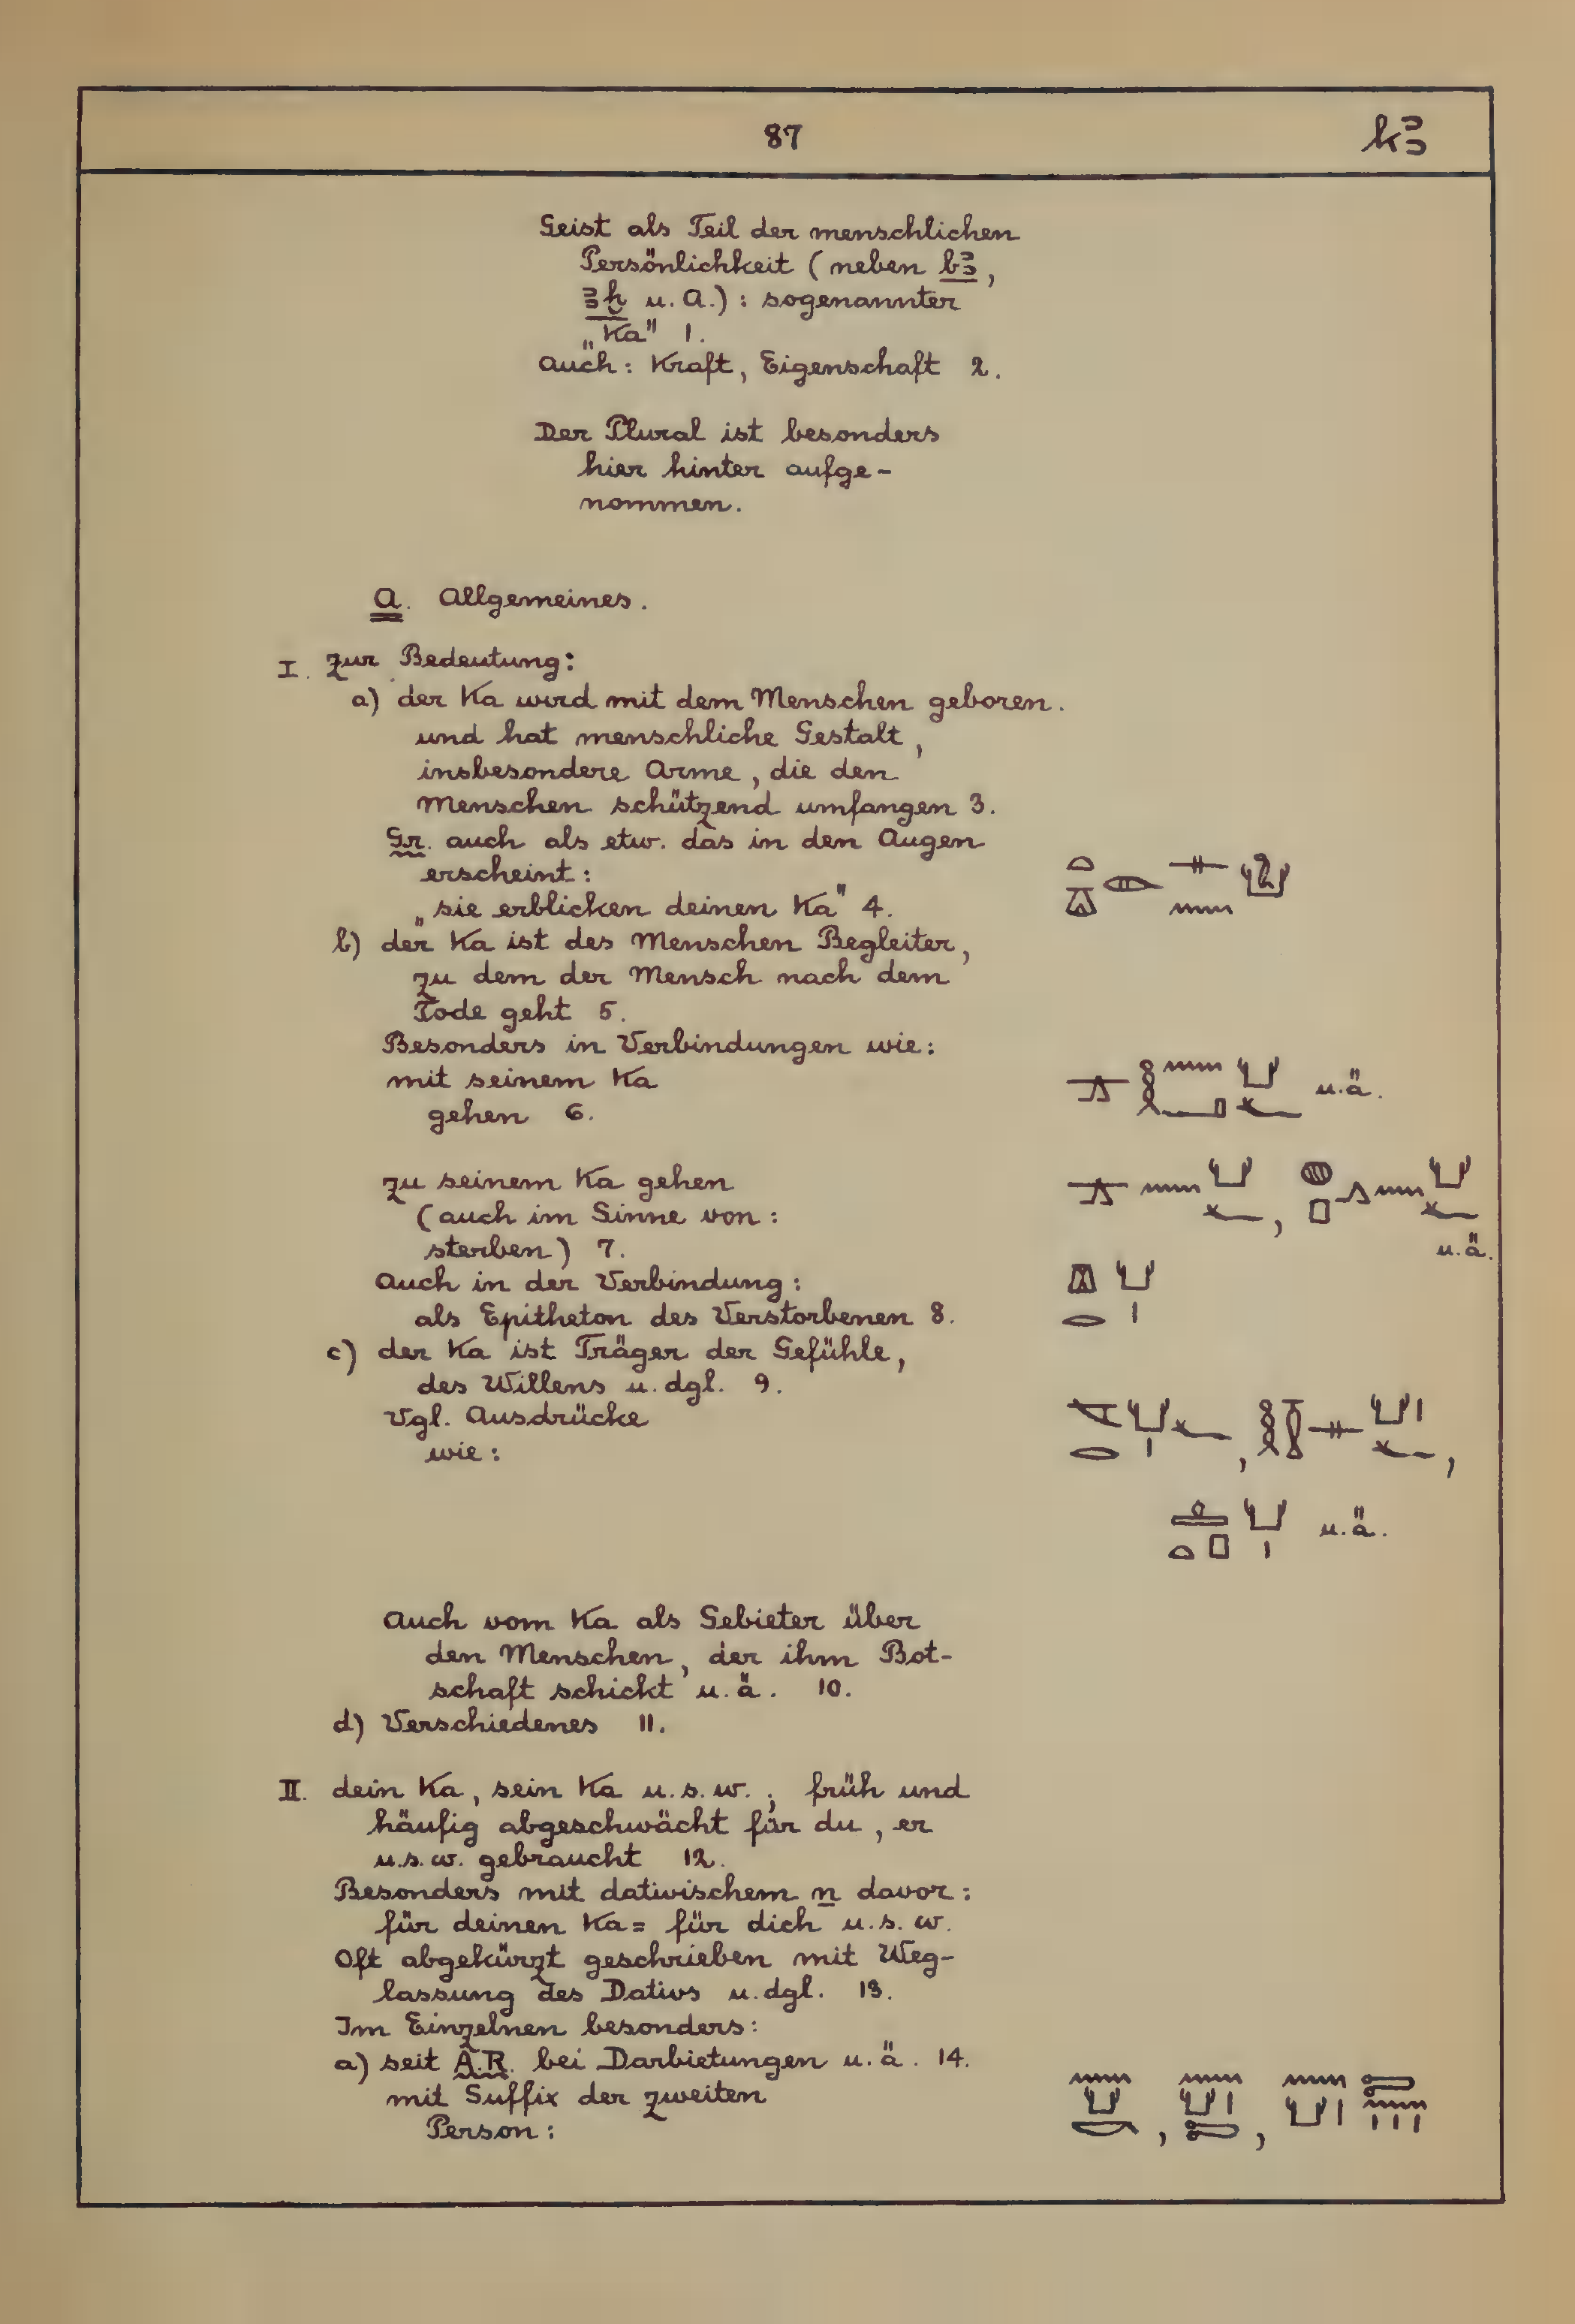 87 kꜣ
Geist als Teil der menschlichen
Persönlichkeit (neben bꜣ,
ꜣḫ u. a.): sogenannter
„Ka" 1.
Auch: Kraft, Eigenschaft 2.
Der Plural ist besonders
hier hinter aufge-
nommen.
A. Allgemeines.
I. zur Bedeutung:
a) der Ka wird mit dem Menschen geboren.
und hat menschliche Gestalt,
insbesondere Arme, die den
Menschen schützend umfangen 3.
Gr. auch als etw. das in den Augen
erscheint:
„sie erblicken deinen Ka" 4.
b) der Ka ist des Menschen Begleiter,
zu dem der Mensch nach dem
Tode geht 5.
Besonders in Verbindungen wie:
mit seinem Ka u.ä.
gehen 6.
zu seinem Ka gehen
(auch im Sinne von:
sterben) 7. u.ä.
Auch in der Verbindung:
als Epitheton des Verstorbenen 8.
c) der Ka ist Träger der Gefühle,
des Willens u. dgl. 9.
Vgl. Ausdrücke
wie:
u.ä.
Auch vom Ka als Gebieter über
den Menschen, der ihm Bot-
schaft schickt u. ä. 10.
d) Verschiedenes 11.
II. dein Ka, sein Ka u. s. w.; früh und
häufig abgeschwächt für du, er
u.s.w. gebraucht 12.
Besonders mit dativischem n davor:
für deinen Ka = für dich u. s. w.
Oft abgekürzt geschrieben mit Weg-
lassung des Dativs u. dgl. 13.
Im Einzelnen besonders:
a) seit A.R. bei Darbietungen u. ä. 14.
mit Suffix der zweiten
Person: